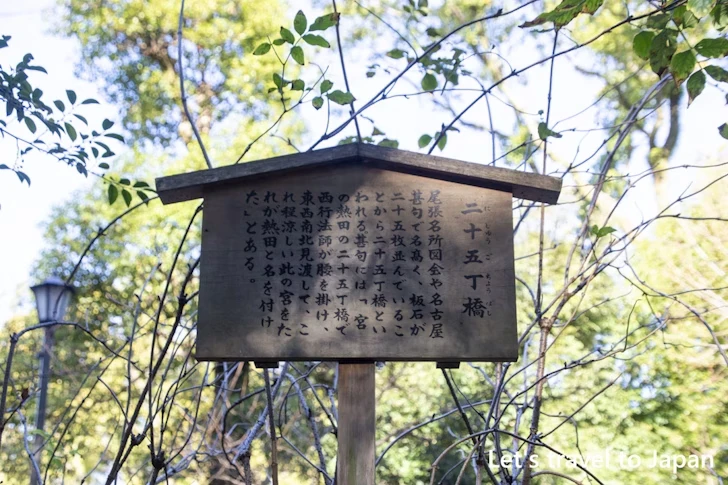 二十五丁橋
にじゅうごちょうばし
尾張名所図会や名古屋
甚句で名高く、板石が
二十五枚並んでいるこ
とから二十五丁橋とい
われる。甚句には「宮
の熱田の二十五丁橋で
西行法師が腰を掛け、
東西南北見渡して、こ
れ程涼しい此の宮をた
れが熱田と名を付け
た」とある。
Let's travel to Japan